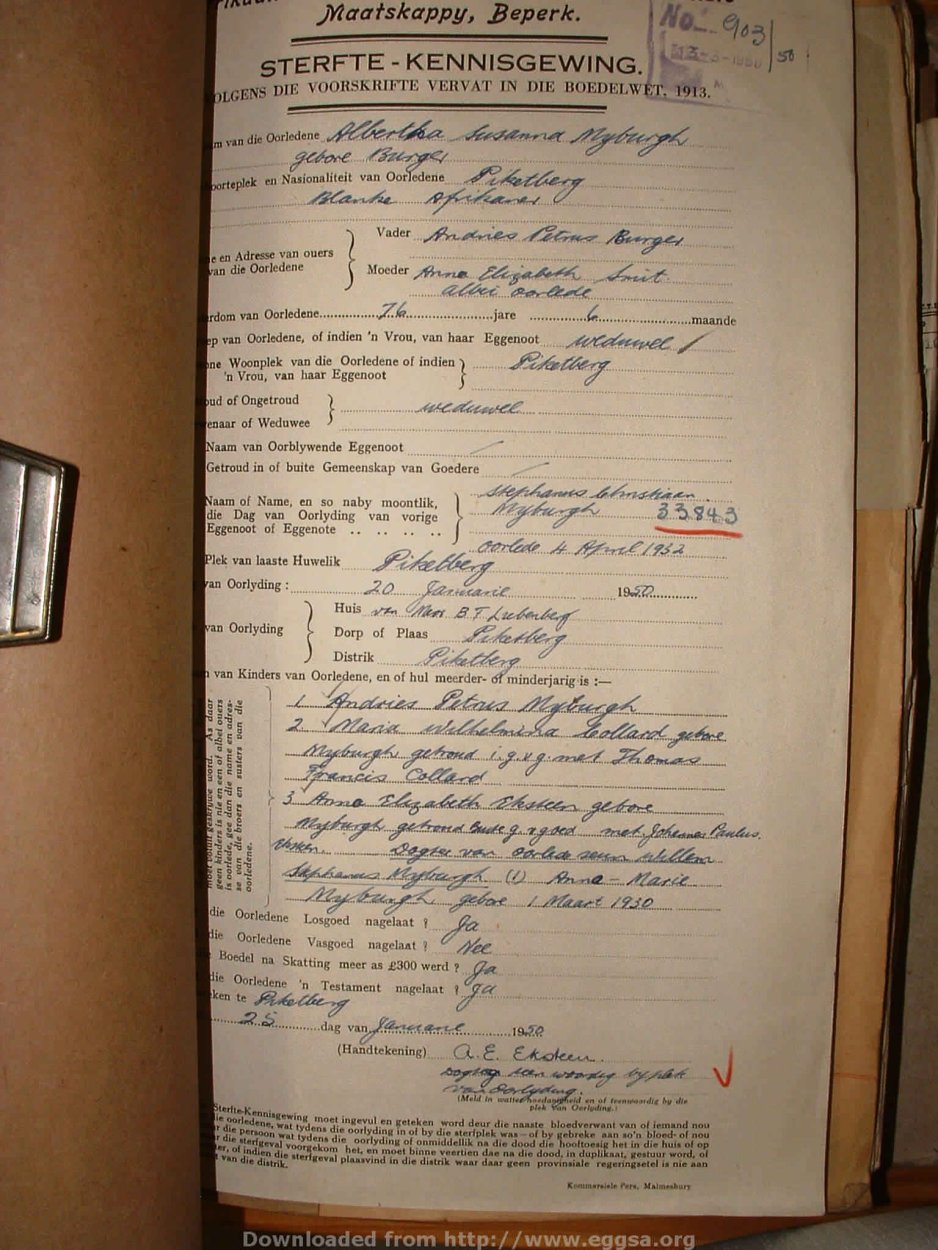 Maatskappy, Beperk.
No. 903/50
STERFTE - KENNISGEWING.
OLGENS DIE VOORSKRIFTE VERVAT IN DIE BOEDELWET, 1913.
m van die Oorledene Albertha Susanna Myburgh
gebore Burger
oorteplek en Nasionaliteit van Oorledene Piketberg
Blanke Afrikaner
Vader Andries Petrus Burger
e en Adresse van ouers
van die Oorledene
Moeder Anna Elizabeth Smit
albei oorlede
erdom van Oorledene 76 jare 6 maande
ep van Oorledene, of indien 'n Vrou, van haar Eggenoot weduwee
one Woonplek van die Oorledene of indien Piketberg
'n Vrou, van haar Eggenoot
oud of Ongetroud
weduwee
enaar of Weduwee
Naam van Oorblywende Eggenoot
Getroud in of buite Gemeenskap van Goedere
Stephanus Christiaan
Naam of Name, en so naby moontlik,
die Dag van Oorlyding van vorige
Eggenoot of Eggenote
Myburgh 33843
oorlede 4 April 1932
Plek van laaste Huwelik Piketberg
van Oorlyding : 20 Januarie 1950
Huis van B.T. Liebenberg
van Oorlyding
Dorp of Plaas Piketberg
Distrik Piketberg
n van Kinders van Oorledene, en of hul meerder- of minderjarig is :—
moet voluit geskrywe word. As daar
geen kinders is nie en een of albei ouers
is oorlede, gee dan die name en adres-
se van die broers en susters van die
oorledene.
1 Andries Petrus Myburgh
2 Maria Wilhelmina Collard gebore
Myburgh getroud i.g.v.g. met Thomas
Francis Collard
3 Anna Elizabeth Eksteen gebore
Myburgh getroud buite g. v goed met Johannes Paulus
Eksteen. Dogter van oorlede seun Willem
Stephanus Myburgh (1) Anna - Marie
Myburgh gebore 1 Maart 1930
die Oorledene Losgoed nagelaat ? Ja
die Oorledene Vasgoed nagelaat ? Nee
Boedel na Skatting meer as £300 werd ? Ja
die Oorledene 'n Testament nagelaat ? Ja
eken te Piketberg
25 dag van Januarie 1950
(Handtekening) A. E. Eksteen.
Dogter teenwoordig by plek
van oorlyding.
(Meld in watter hoedanigheid en of teenwoordig by die
plek van Oorlyding.)
Sterfte-Kennisgewing moet ingevul en geteken word deur die naaste bloedverwant van of iemand nou
ie oorledene, wat tydens die oorlyding in of by die sterfplek was—of by gebreke aan so'n bloed- of nou
r die persoon wat tydens die oorlyding of onmiddellik na die dood die hooftoesig het in die huis of op
r die sterfgeval voorgekom het, en moet binne veertien dae na die dood, in duplikaat, gestuur word, of
er, of indien die sterfgeval plaasvind in die distrik waar daar geen provinsiale regeringsetel is nie aan
t van die distrik.
Kommersiele Pers, Malmesbury
Downloaded from http://www.eggsa.org